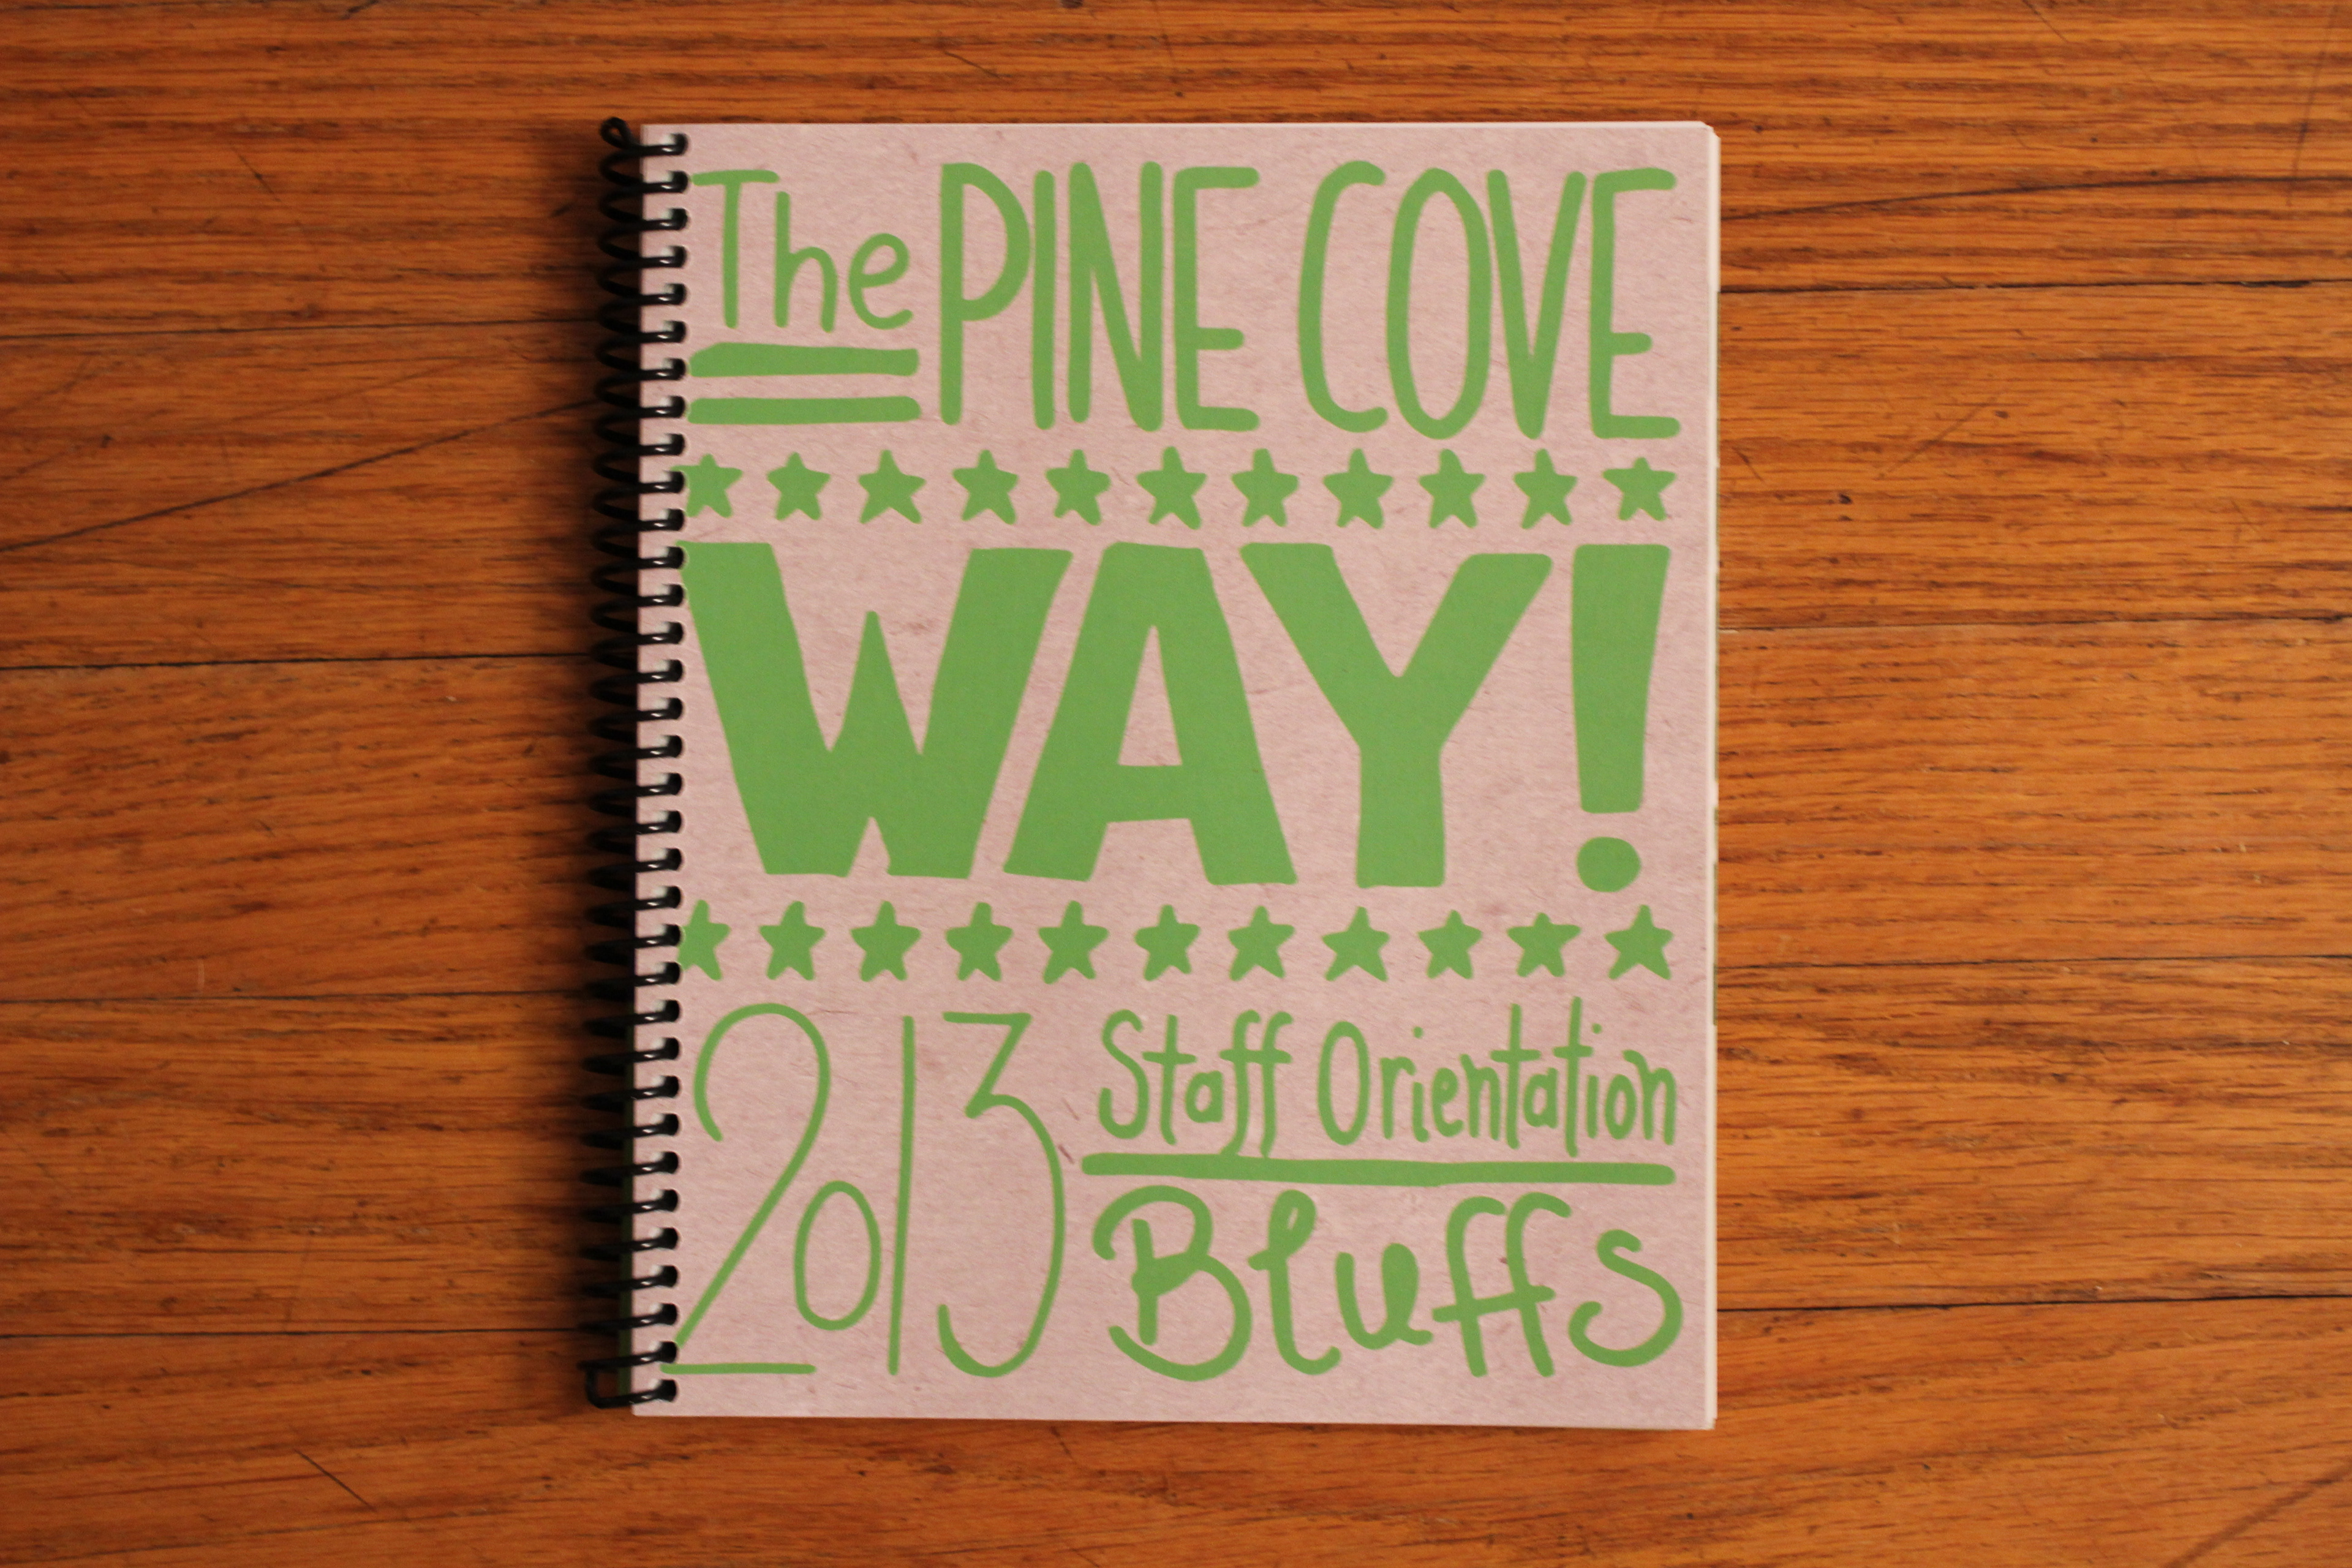 The PINE COVE
WAY!
2013 Staff Orientation
Bluffs